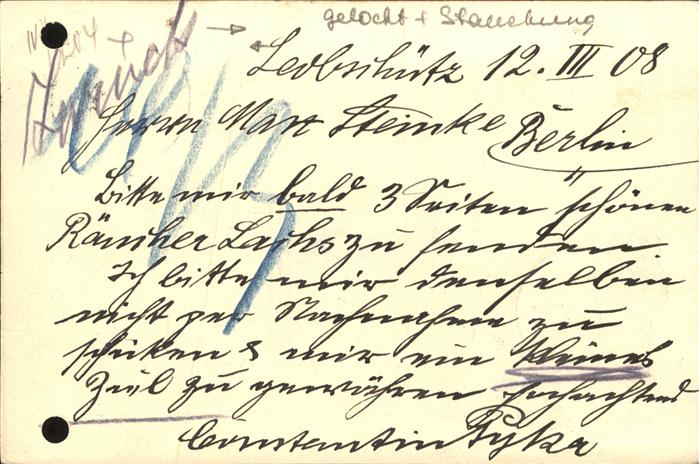 gelocht + Stauchung
Zurück
Leobschütz 12. III 08
Herrn Max Steinke Berlin
Bitte mir bald 3 Seiten schönen
Räucher Lachs zu senden.
Ich bitte mir denselben
nicht per Nachnahme zu
schicken & mir ein kleines
Ziel zu gewähren Hochachtend
Constantin Pyka